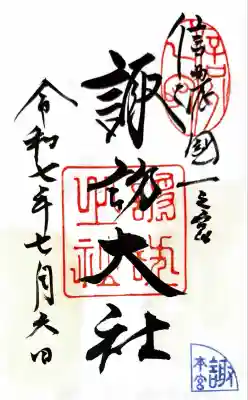 信濃國一之宮
諏訪大社
令和七年七月六日
諏
本宮